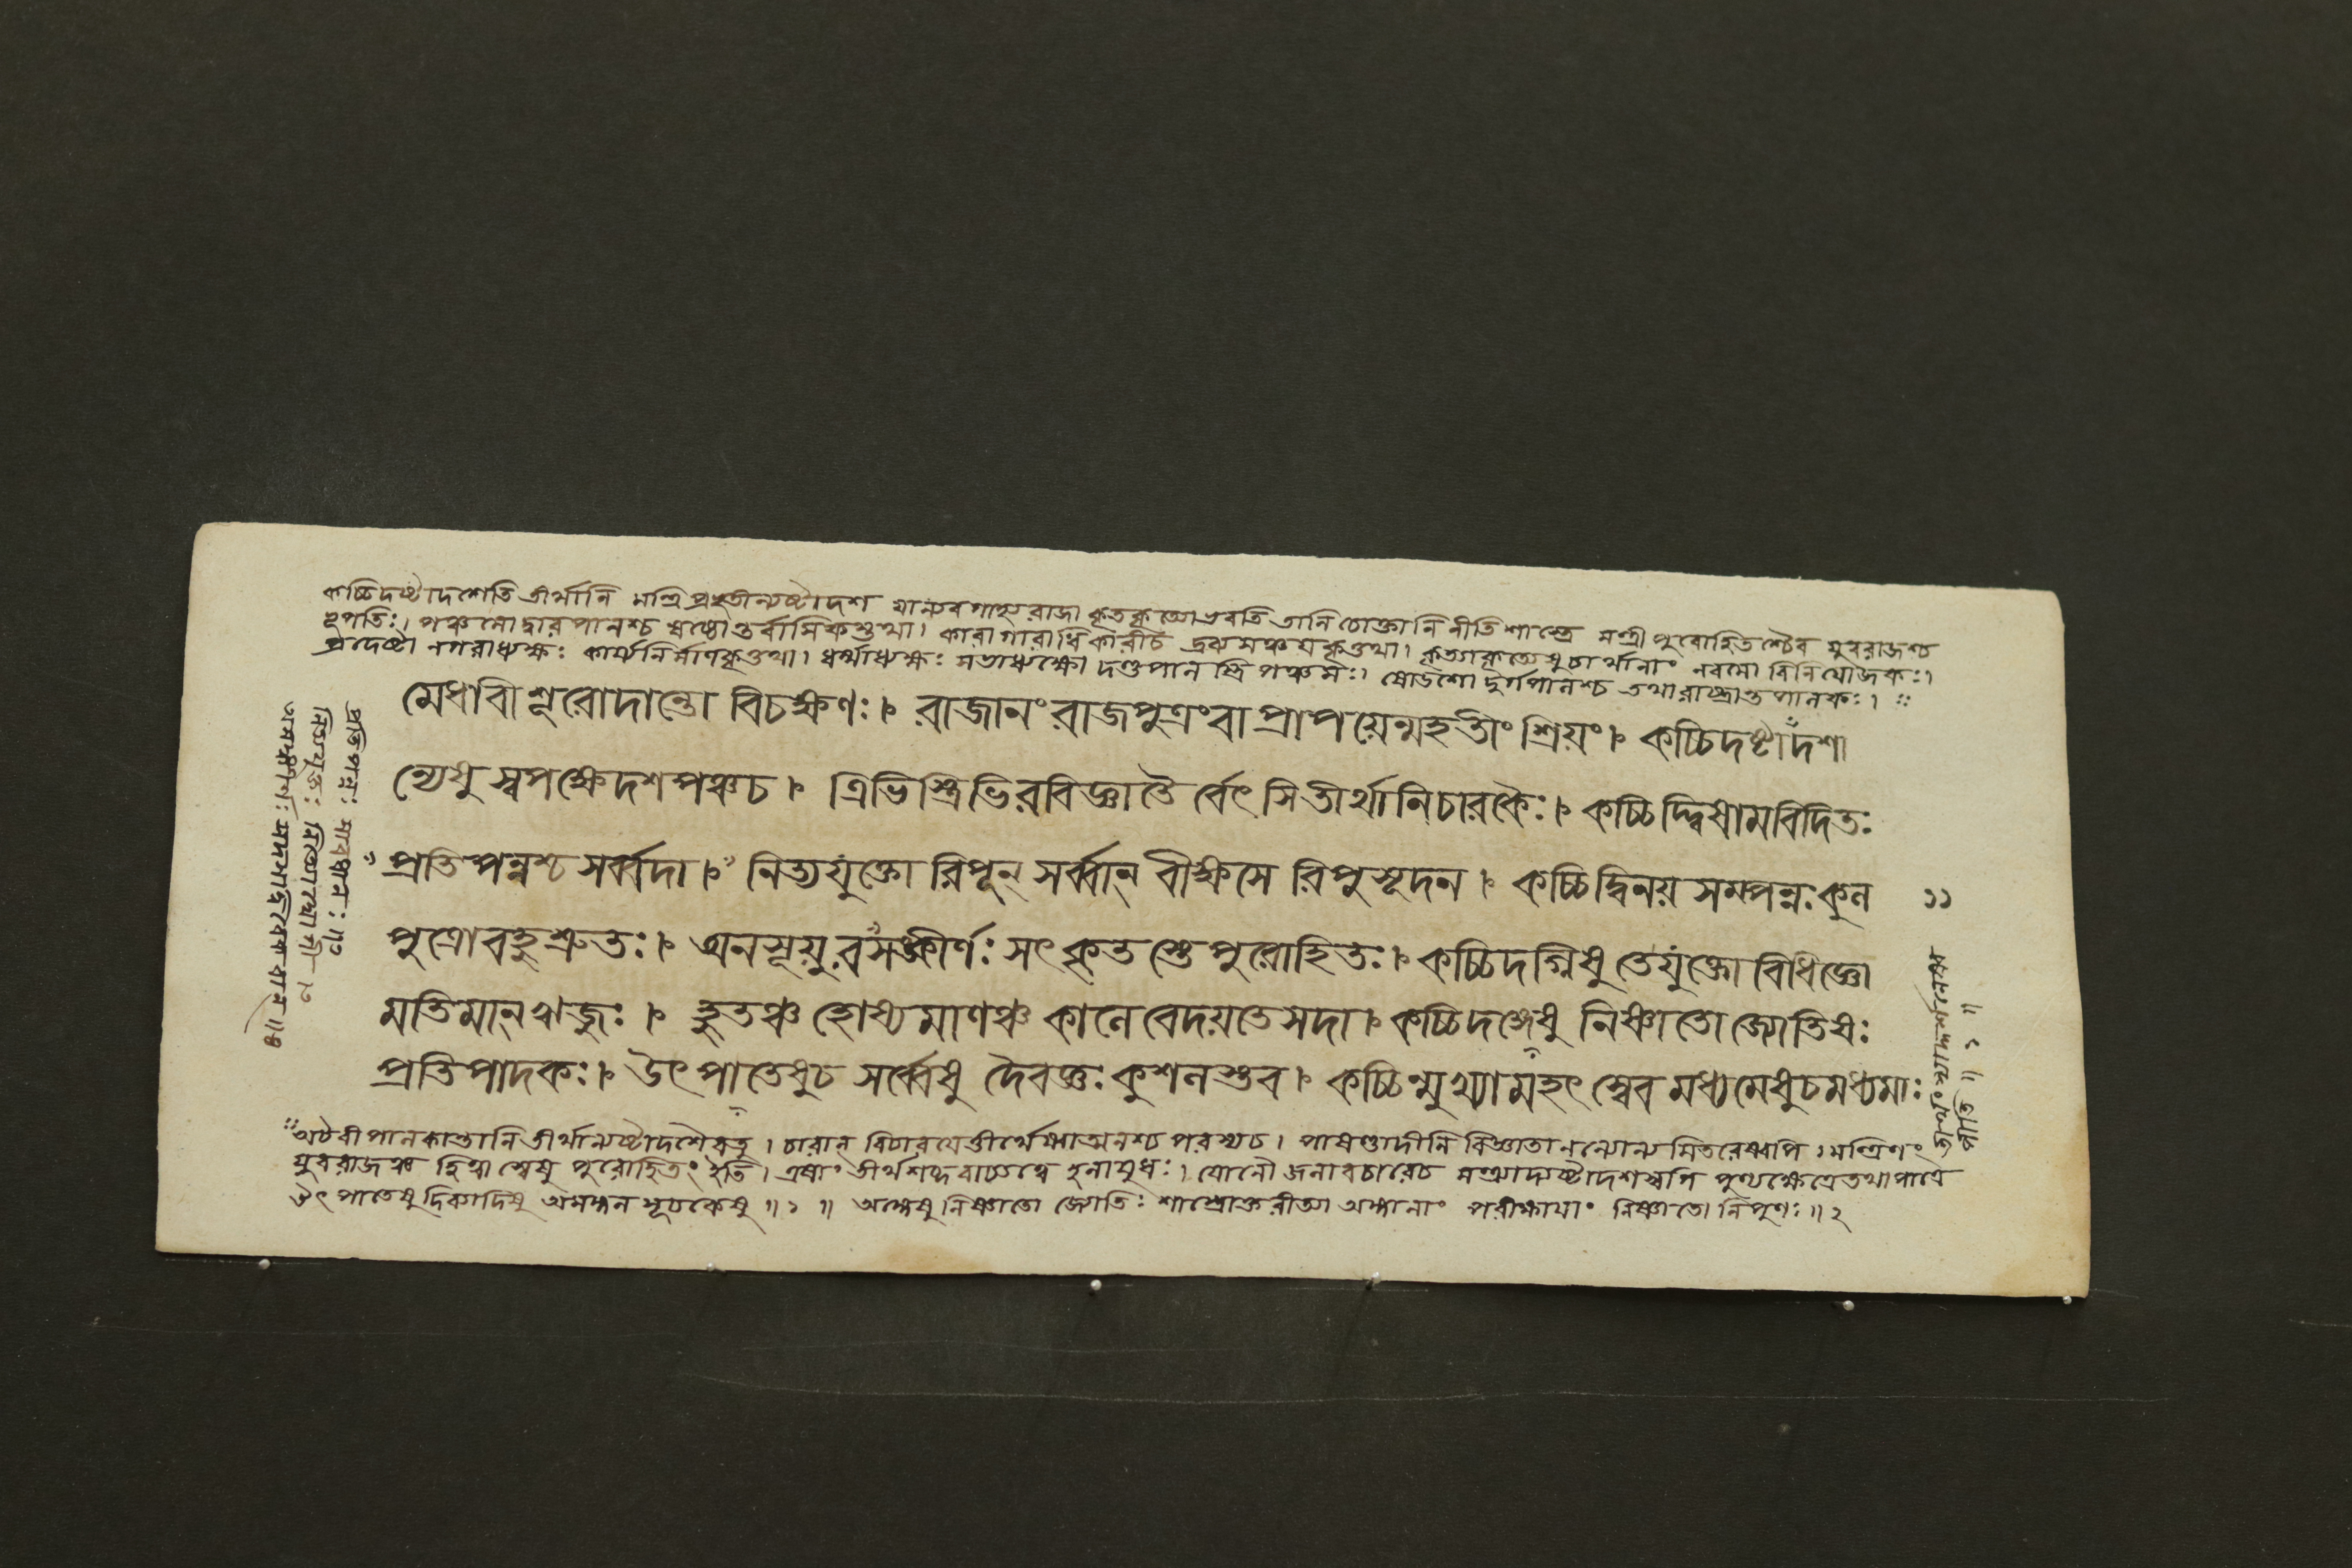 কচ্চিদষ্টাদশেতি তীর্থানি মন্ত্রিপ্রভৃতীন্যষ্টাদশ যান্যবগাহ্য রাজা কৃতকৃত্যো ভবতি তানি চোক্তানি নীতিশাস্ত্রে মন্ত্রী পুরোহিতশ্চৈব যুবরাজশ্চ
ভূপতিঃ। পঞ্চমো দ্বারপালশ্চ ষষ্ঠোন্তর্বাসিকস্তথা। কারাগারাধিকারীচ দ্রব্যসঞ্চয়কৃত্তথা। কৃত্যাকৃত্যেষুচার্থানাং নবমো বিনিযোজকঃ।
প্রদেষ্টা নগরাধ্যক্ষঃ কার্য্যনির্ম্মাণকৃত্তথা। ধর্ম্মাধ্যক্ষঃ সভাধ্যক্ষো দণ্ডপালস্ত্রিপঞ্চমঃ। ষোডশো দুর্গপালশ্চ তথারাষ্ট্রান্তপালকঃ।
মেধাবী শূরোদান্তো বিচক্ষণঃ। রাজানং রাজপুত্রংবা প্রাপয়েন্মহতীং শ্রিয়ং। কচ্চিদষ্টাদশা
ন্যেষু স্বপক্ষেদশপঞ্চচ। ত্রিভিস্ত্রিভিরবিজ্ঞাতৈ র্বেৎসি তীর্থানিচারকৈঃ। কচ্চিদ্দ্বিষামবিদিতঃ
প্রতিপন্নশ্চ সর্ব্বদা। নিত্যযুক্তো রিপূন্ সর্ব্বান্ বীক্ষসে রিপুসূদন। কচ্চিদ্বিনয় সম্পন্নঃ কুল
১১
পুত্রোবহুশ্রুতঃ। অনসূয়ুরসঙ্কীর্ণঃ সৎকৃতস্তে পুরোহিতঃ। কচ্চিদগ্নিষু তেযুক্তো বিধিজ্ঞো
মতিমান্ ঋজুঃ। হুতঞ্চ হোষ্যমাণঞ্চ কালে বেদয়তে সদা। কচ্চিদঙ্গেষু নিষ্ণাতো জ্যোতিষঃ
প্রতিপাদকঃ। উৎপাতেষুচ সর্ব্বেষু দৈবজ্ঞঃ কুশলস্তব। কচ্চিন্মুখ্যা মহৎস্বেব মধ্যমেষুচমধ্যমাঃ
অটবীপালকান্তানি তীর্থান্যষ্টাদশৈবতু। চারান্ বিচারযেত্তীর্থেষ্বাত্মনশ্চ পরস্যচ। পাষণ্ডাদীনবিজ্ঞাতানন্যোন্যমিতরেষ্বপি। মন্ত্রিণং
যুবরাজঞ্চ হিত্বা স্বেষু পুরোহিতং ইতি। এষাং তীর্থশব্দবাচ্যত্বে হলাযুধঃ। যোনৌ জলাবতারেচ মন্ত্র্যাদ্যষ্টাদশস্বপি পুণ্যক্ষেত্রে তথা পাত্রে
উৎপাতেষু দিব্যাদিষু অমঙ্গলসূচকেষু ॥১॥ অঙ্গেষু নিষ্ণাতো জ্যোতিঃ শাস্ত্রোক্তরীত্যা অঙ্গানাং পরীক্ষাযাং নিষ্ণাতো নিপুণঃ ॥২
প্রতিপন্নঃ সাবধানঃ
নিত্যযুক্তঃ নিত্যোদ্যোগী